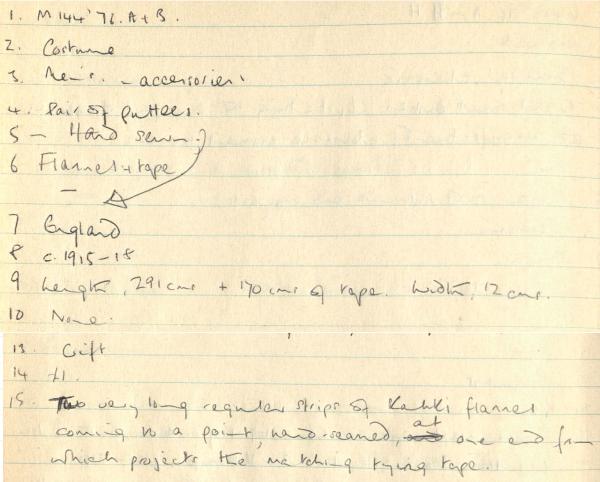 1. M144'76. A + B.
2. Costume
3. Men's. - accessories.
4. Pair of puttees.
5 - Hand sewn.
6 Flannel + tape
-
7 England
8 c. 1915-18
9 Length, 291 cms + 170 cms of tape. Width, 12 cms.
10 None.
13. Gift
14 £1.
15. Two very long regular strips of Kahki flannel,
coming to a point, hand-seamed, at one end from
which projects the matching tying tape.